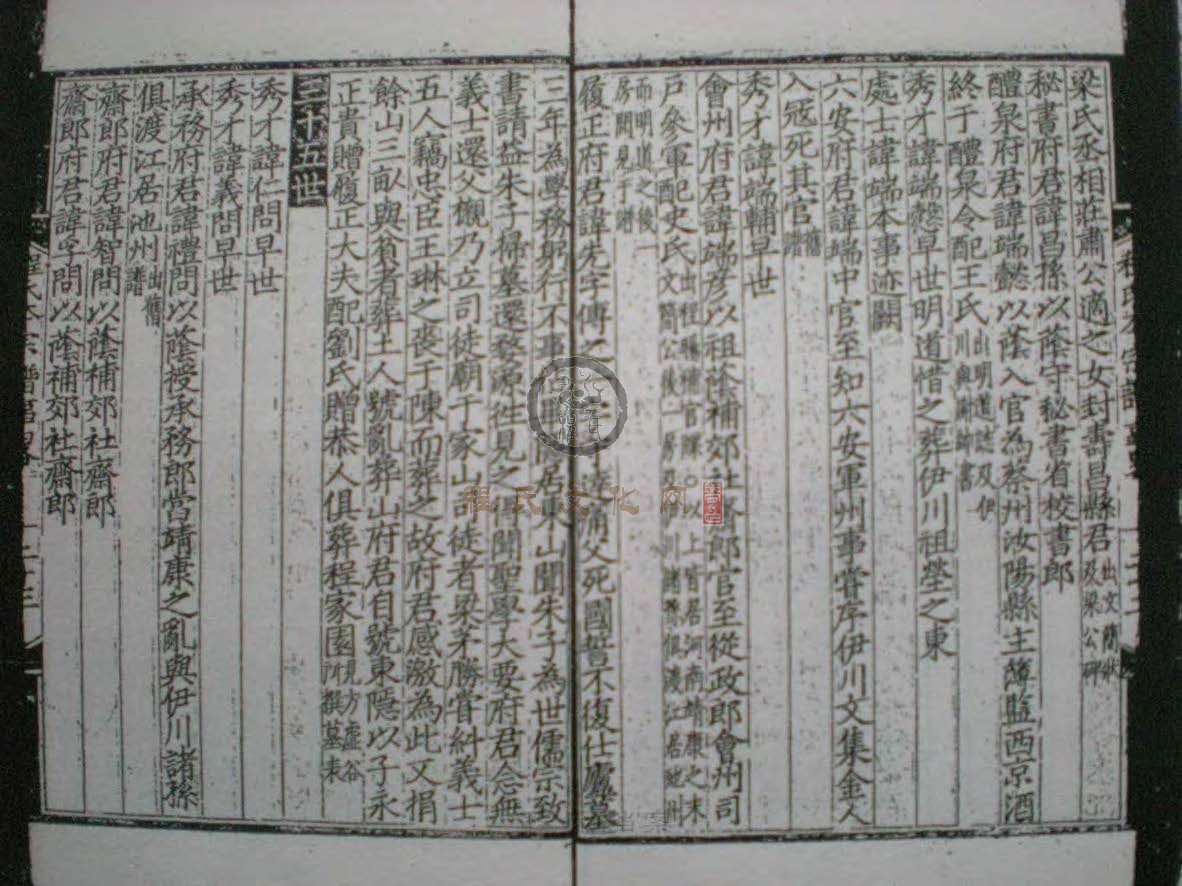 梁氏丞相莊肅公適之女封壽昌縣君出文簡狀及梁公碑
秘書府君諱昌孫以蔭守秘書省校書郎
醴泉府君諱端懿以蔭入官為蔡州汝陽縣主簿監西京酒
終于醴泉令配王氏出明道誌及伊川與謝帥書
秀才諱端愨早世明道惜之葬伊川祖塋之東
處士諱端本事迹闕
六安府君諱端中官至知六安軍州事嘗序伊川文集金人
入寇死其官舊譜
秀才諱端輔早世
會州府君諱端彥以祖蔭補郊社齋郎官至從政郎會州司
戶參軍配史氏出程賜禮官牒以上皆居河南靖康之末文簡公後一房及伊川諸孫俱渡江居池州
而明道之後一房闕見于譜
履正府君諱先字傳之痛父死國誓不復仕廬墓
三年為學務躬行不事隱居東山聞朱子為世儒宗致
書請益朱子掃墓還婺源往見之得聞聖學大要府君念無
義士還父櫬乃立司徒廟于家山訪徒者梁茅勝嘗糾義士
五人竊忠臣王琳之喪于陳而葬之故府君感激為此又捐
餘山三畝與貧者葬土人號亂葬山府君自號東隱以子永
正貴贈履正大夫配劉氏贈恭人俱葬程家園見方虛谷所撰墓表
三十五世
秀才諱仁問早世
秀才諱義問早世
承務府君諱禮問以蔭授承務郎當靖康之亂與伊川諸孫
俱渡江居池州出舊譜
齋郎府君諱智問以蔭補郊社齋郎
齋郎府君諱孚問以蔭補郊社齋郎
程氏文化网